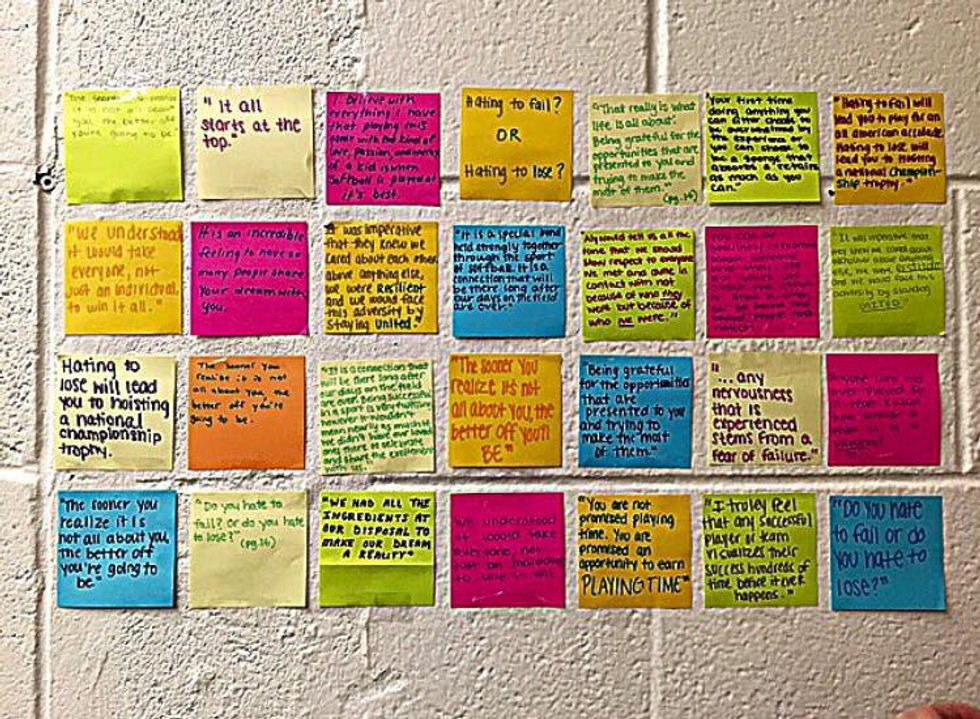 you the better off
you're going to be."
"It all
starts at the
top."
I believe with
everything I have
that playing this
game with the kind of
love, passion, and
of a kid is when
softball is played at
it's best.
Hating to fail?
OR
Hating to lose?
"That really is what
life is all about.
Being grateful for the
opportunities that are
presented to you and
trying to make the
most of them."
(pg. 16)
"Your first time
doing anything you
can either choose to
be overwhelmed by
the experience or
you can choose to
be a sponge that
absorbs & retains
as much as you
can."
"Hating to fail will
lead you to play for an
all american accolade.
Hating to lose will
lead you to hoisting
a national champion-
ship trophy."
"We understood
it would take
everyone, not
just an individual,
to win it all."
It is an incredible
feeling to have so
many people share
your dream with
you.
It was imperative
that they knew we
cared about each other
above anything else,
we were resilient
and we would face
this adversity by
staying united."
"It is a special bond
held strongly together
through the sport
of softball. It is a
connection that will
be there long after
our days on the field
are over."
would tell us all the
time that we should
show respect to everyone
we met and came in
contact with not
because of who they
were but because of
who we were."
It was imperative that
they knew we cared about
each other above anything
else, we were resilient
and we would face this
adversity by standing
UNITED."
Hating to
lose will lead
you to hoisting
a national
championship
trophy.
The sooner you
realize it is not
all about you, the
better off you're
going to be.
"It is a connection that
will be there long after
our days on the field
are over. Being successful
in a sport is very
however it wouldn't
mean nearly as much if
we didn't have our loved
ones there to celebrate
and share the excitement
with us.
"The sooner you
realize it's not
all about you, the
better off you'll
BE"
"Being grateful
for the opportunities
that are
presented to you
and trying to
make the most
of them."
"... any
nervousness
that is
experienced
stems from a
fear of failure."
"The sooner you
realize it is
not all about you,
the better off
you're going to
be"
"Do you hate to
fail? Or do you hate
to lose?" (pg. 16)
"WE HAD ALL THE
INGREDIENTS AT
OUR DISPOSAL TO
MAKE OUR DREAM
A REALITY"
We understood
it would take
everyone, not
just an individual
to win it all.
"You are not
promised playing
time. You are
promised an
opportunity to earn
PLAYING TIME"
"I truley feel
that any successful
player or team
visualizes their
success hundreds of
time before it ever
happens."
"DO YOU HATE
to fail or do
you HATE to
lose?"